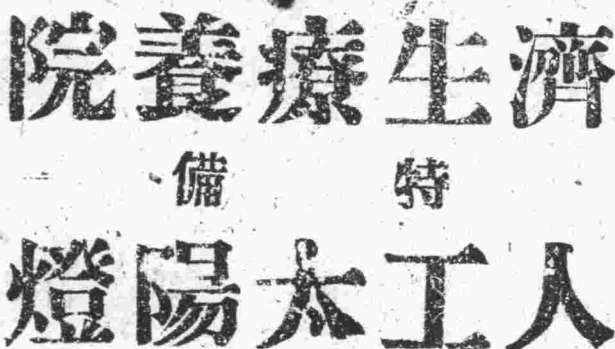 濟生療養院
特備
人工太陽燈